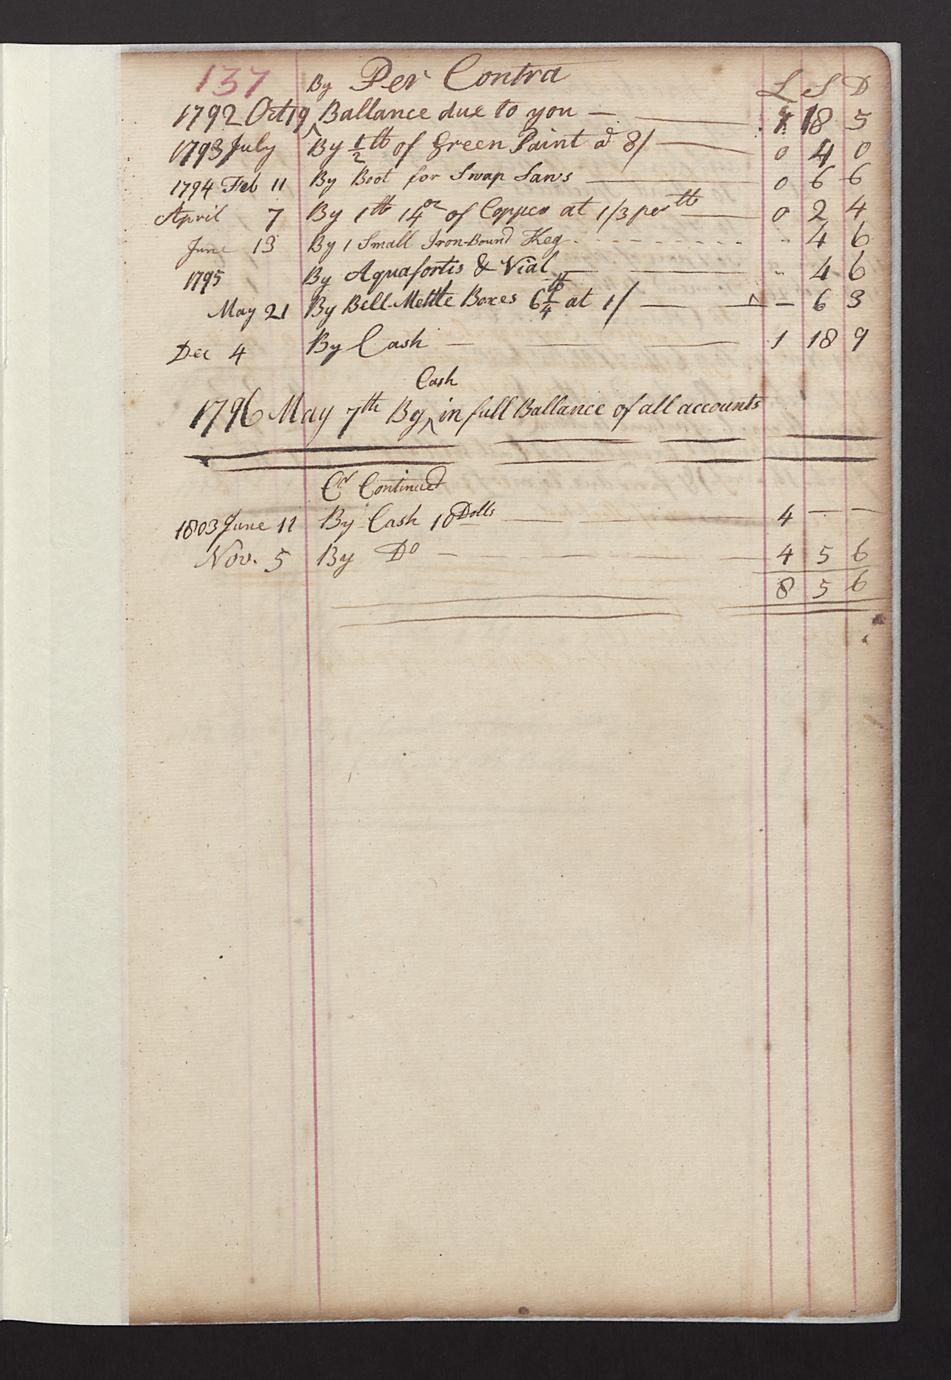 137 Per Contra L S D
1792 Oct 19 By Ballance due to you 1 18 5
1793 July By ½ ℔ of Green Paint a 8/ 0 4 0
1794 Feb 11 By Boot for Swap Saws 0 6 6
April 7 By 1 ℔ 14 oz of Copper at 1/3 per ℔ 0 2 4
June 13 By 1 Small Iron-Bound Keg 4 6
1795 By Aquafortis & Vial 4 6
May 21 By Bell Mettle Boxes 6¼ ℔ at 1/ 6 3
Dec 4 By Cash 1 18 9
1796 May 7th By Cash in full Ballance of all accounts
Cr Continued
1803 June 11 By Cash 10 Dolls 4 — —
Nov. 5 By Do 4 5 6
8 5 6